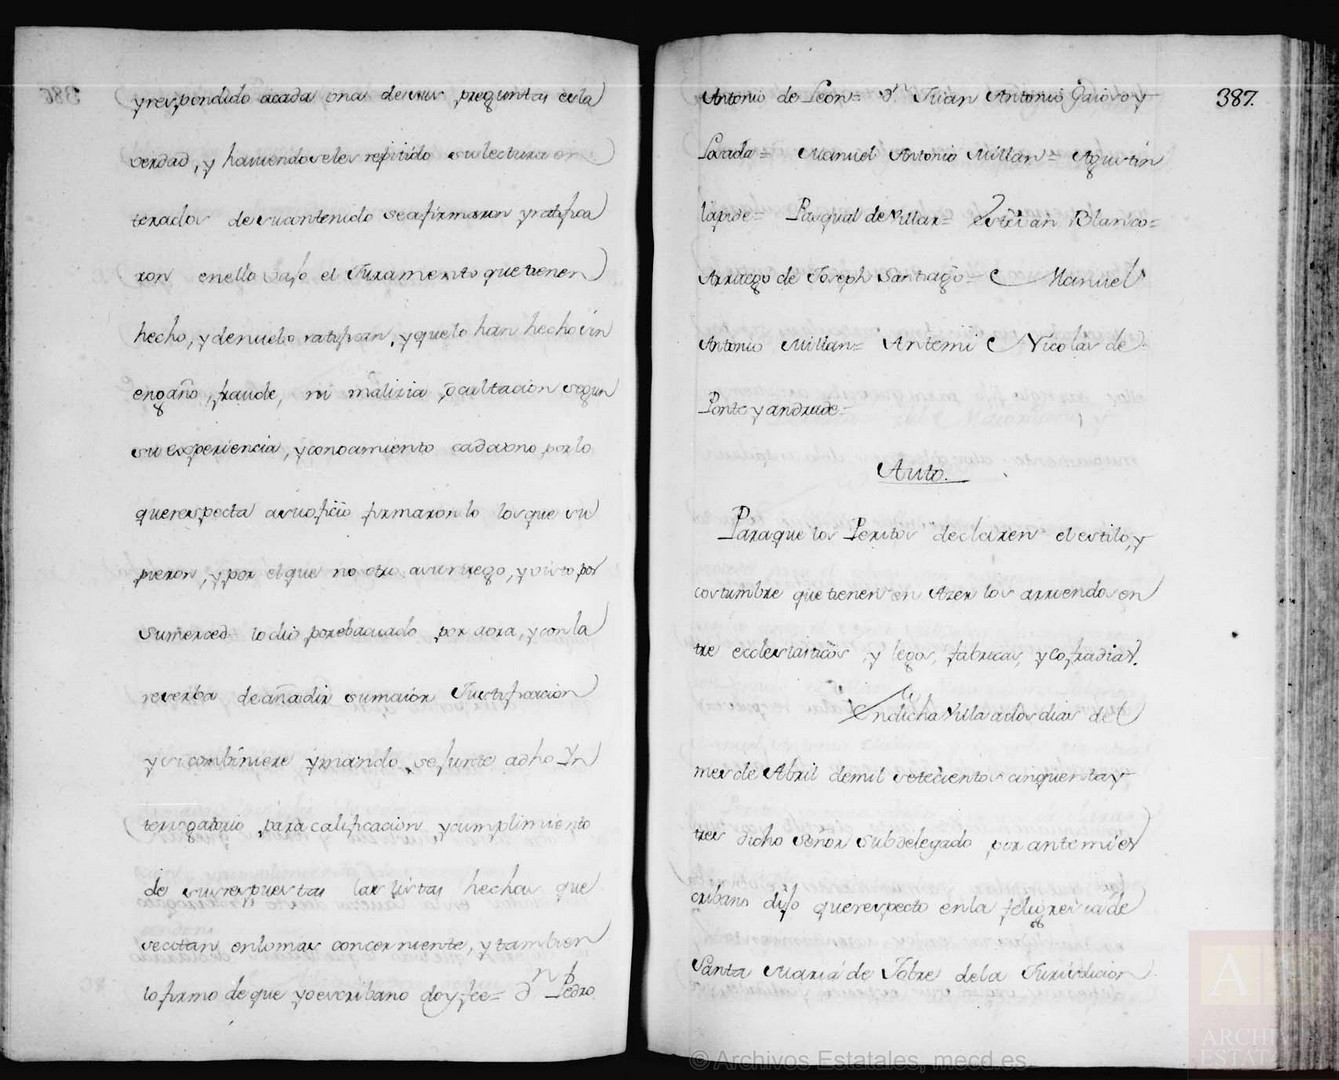 y respondido acada una desus preguntas esla
verdad, y haviendoseles repitido sulectura en
terados desucontenido seafirmaron yratifica
ron enello vajo el Juramento quetienen
hecho, ydenuebo ratifican, yquelo han hechosin
engaño, fraude, ni malizia ocultacion segun
su experiencia, yconocimiento cadauno porlo
querespecta asuoficio firmaronlo losque su
pieron, ypor elque no otro asurruego, yvisto por
sumerced lo dio porebacuado por aora, yconla
reserba deañadir sumaior Justificacion
ysicombiniere ymando sejunte adho Yn
terrogatorio para calificacion ycumplimiento
de susrespuestas las listas hechas que
secitan enlomas concerniente, ytambien
lofirmo deque yoescribano doyfee= dn Pedro
387.
Antonio de Leon= dn Juan Antonio Gaioso y
Losada= Manuel Antonio Millan= Agustin
Lapide= Pasqual deVillar= Estevan Blanco=
Arruego de Joseph Santiago= Manuel
Antonio Millan= Antemi Nicolas de
Ponte yandrade=
Auto.
Paraque los Peritos declaren el estilo, y
costumbre quetienen en Azer los arriendos en
tre ecclesiasticos, y legos, fabricas, ycofradias.
Endicha Villa ados dias del
mesde Abril demil setecientos cinquentay
tres dicho señor Subdelegado por antemi es
cribano dijo querespecto enla feligresia de
Santa Maria de Tobre dela Jurisdicion
© Archivos Estatales, mecd.es
A
ARCHI
ESTATA